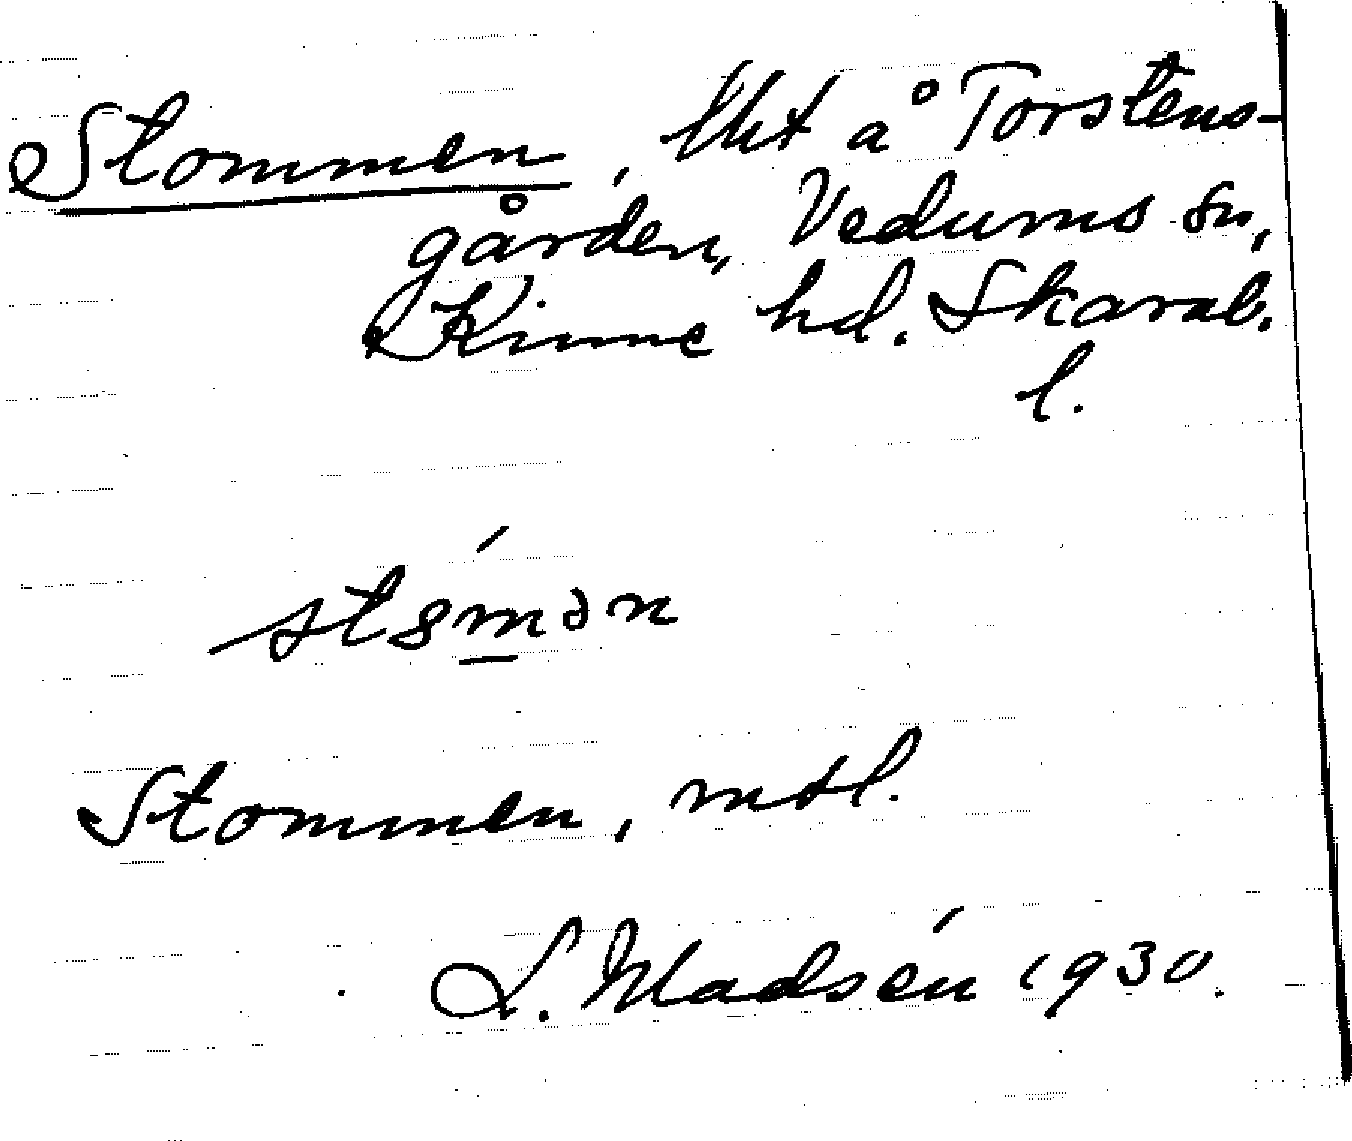 Stommen, lht å Torstens-
gården, Vedums sn,
Kinne hd. Skarab.
l.
stómən
Stommen, mtl.
L. Madsén 1930.